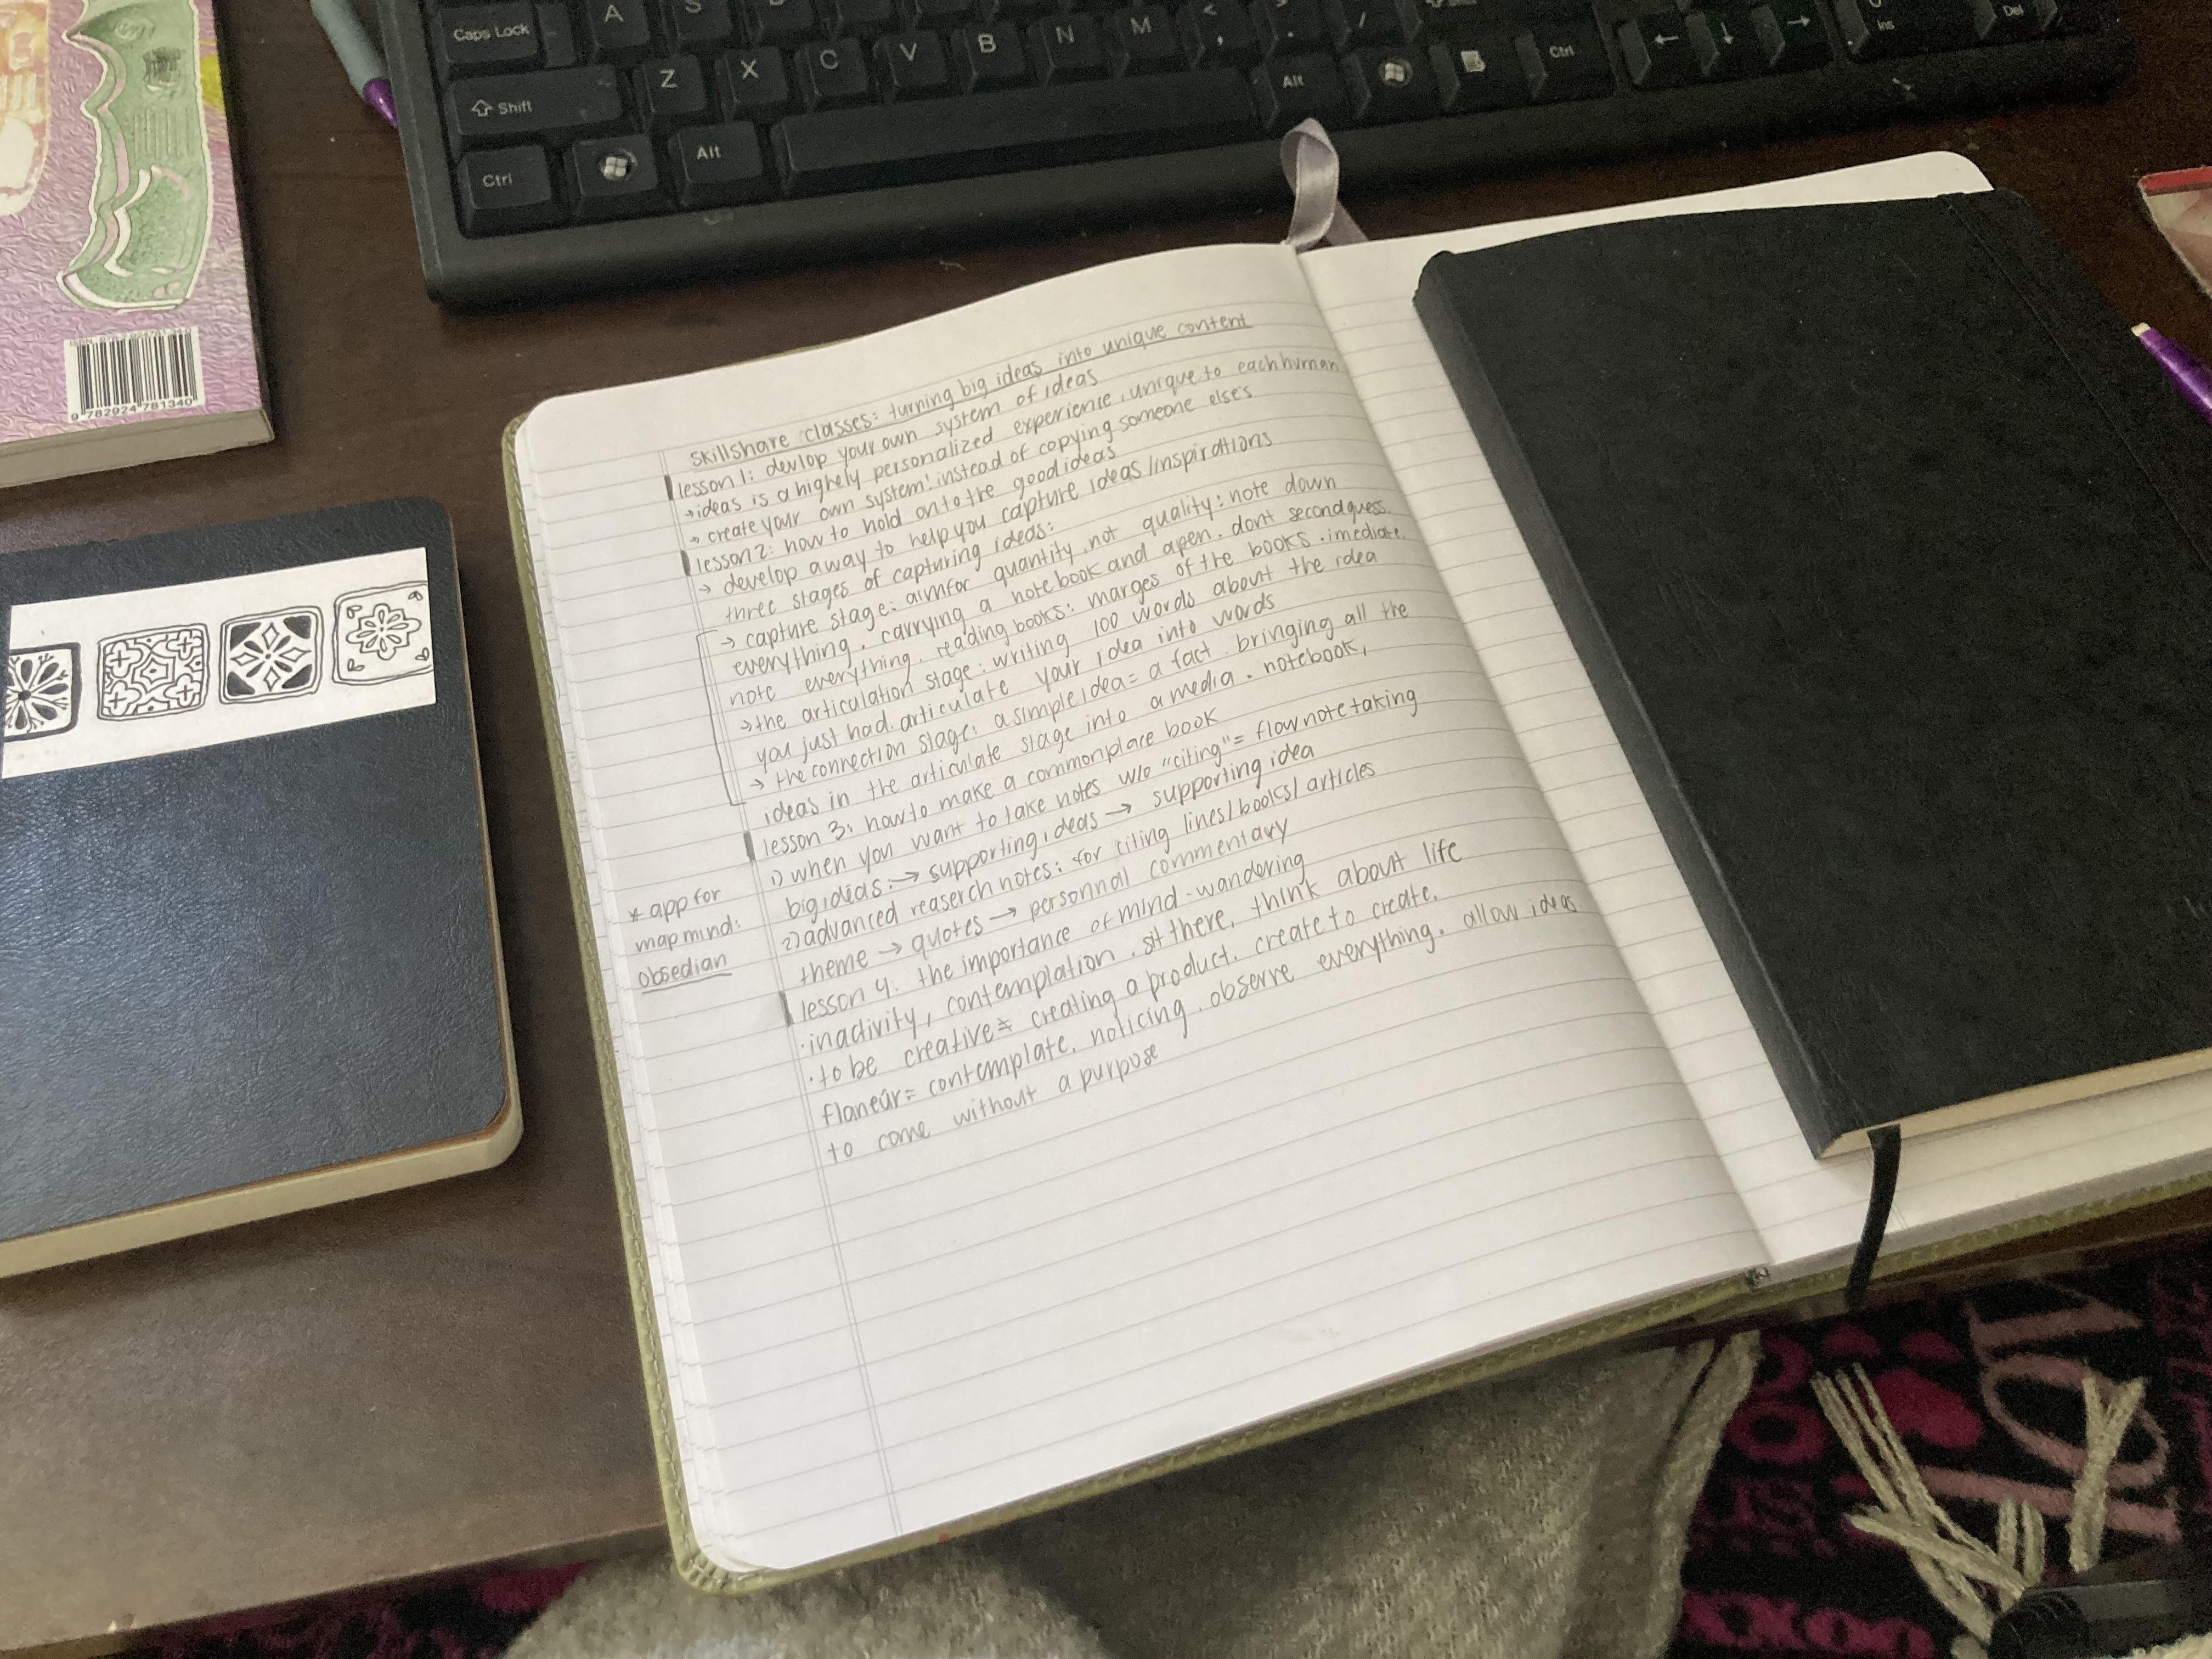 Caps Lock
A
S
Z
X
C
V
B
N
M
<
,
.
/
Shift
Alt
Ctrl
Ins
Del
Ctrl
Alt
9 782924 781340
skillshare classes: turning big ideas into unique content
lesson 1: devlop your own system of ideas
→ ideas is a highely personalized experience, unique to each human
→ create your own system! instead of copying someone else's
lesson 2: how to hold onto the good ideas
→ develop a way to help you capture ideas / inspirations
three stages of capturing ideas:
→ capture stage: aim for quantity, not quality: note down
everything. carrying a notebook and a pen. dont second guess.
note everything. reading books: marges of the books. imediate.
→ the articulation stage: writing 100 words about the idea
you just had. articulate your idea into words
→ the connection stage: a simple idea = a fact. bringing all the
ideas in the articulate stage into a media. notebook,
lesson 3: how to make a commonplace book
1) when you want to take notes w/o "citing" = flow note taking
big idias: → supporting ideas → supporting idea
2) advanced reaserch notes: for citing lines/books/articles
theme → quotes → personnal commentary
lesson 4: the importance of mind-wandering
· inactivity, contemplation. sit there, think about life
· to be creative ≠ creating a product. create to create.
flaneûr = contemplate, noticing. observe everything. allow ideas
to come without a purpose
* app for
map mind:
obsedian